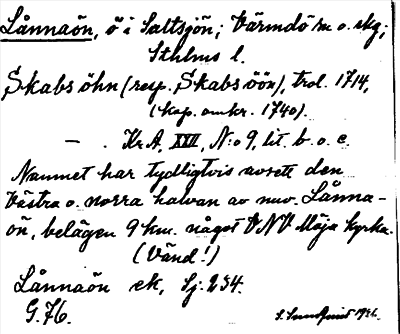 Lånnaön, ö i Saltsjön; Värmdö sn o. skg;
Sthlms l.
Skabs öhn (resp. Skabs öön), trol. 1714,
(kop. omkr. 1740).
— . Kr A, XXII, N:o 9, lit. b. o. c.
Namnet har tydligtvis avsett den
västra o. norra halvan av nuv. Lånna-
ön, belägen 9 km. något VNV Möja kyrka.
(Vänd!)
Lånnaön ek, Sj. 234.
G. 76.
S. Sundquist 1936.